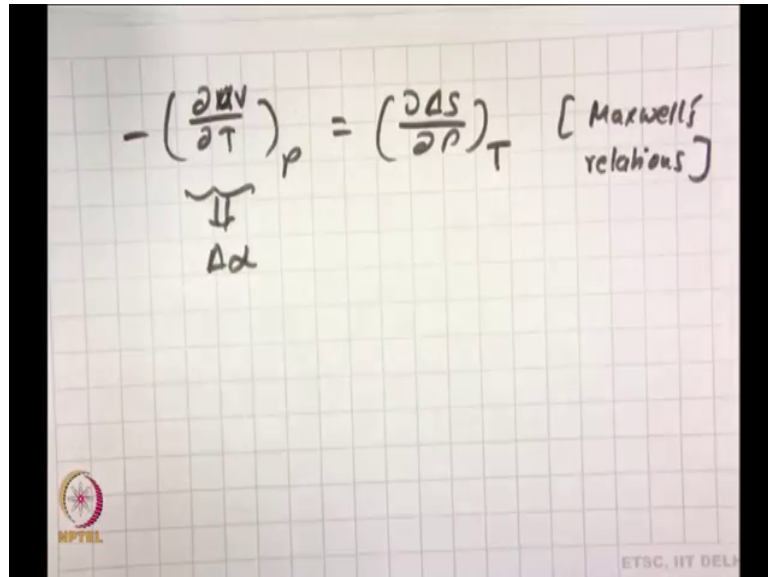 -(∂ΔV/∂T)_P = (∂ΔS/∂P)_T [Maxwell's
relations]
Δα
NPTEL
ETSC, IIT DELH